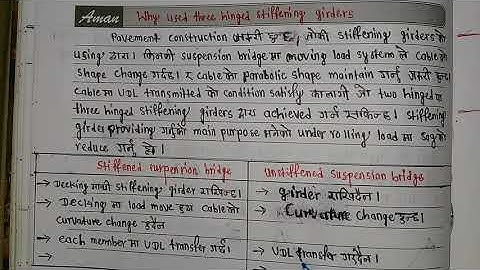 Aman
Why used three hinged stiffening girders
Pavement construction जरुरी हुन्छ, जोकी stiffening girdersको
using द्वारा। किनकी suspension bridge मा moving load system ले cableको
shape change गर्दछ। र cableको parabolic shape maintain गर्नु जरुरी हुन्छ।
cable मा UDL transmittedको condition satisfy का लागी जो two hinged or
three hinged stiffening girders द्वारा achieved गर्न सकिन्छ। stiffening
girder providing गर्नुको main purpose भनेको under rolling load मा sagको
reduce गर्नु हो।
Stiffened suspension bridge
unstiffened suspension bridge
→ Decking माथी stiffening girder राखिन्छ।
→ girder राखिदैन।
→ Decking मा load move हुदा cableको
curvature change हुदैन
→ Curvature change हुन्छ।
→ each member मा UDL transfer गर्छ।
→ UDL transfer गर्दैन।
→
→